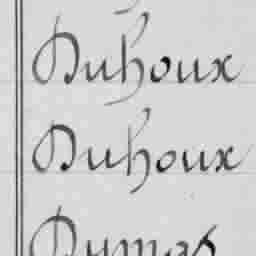 Duhoux
Duhoux
Dumas